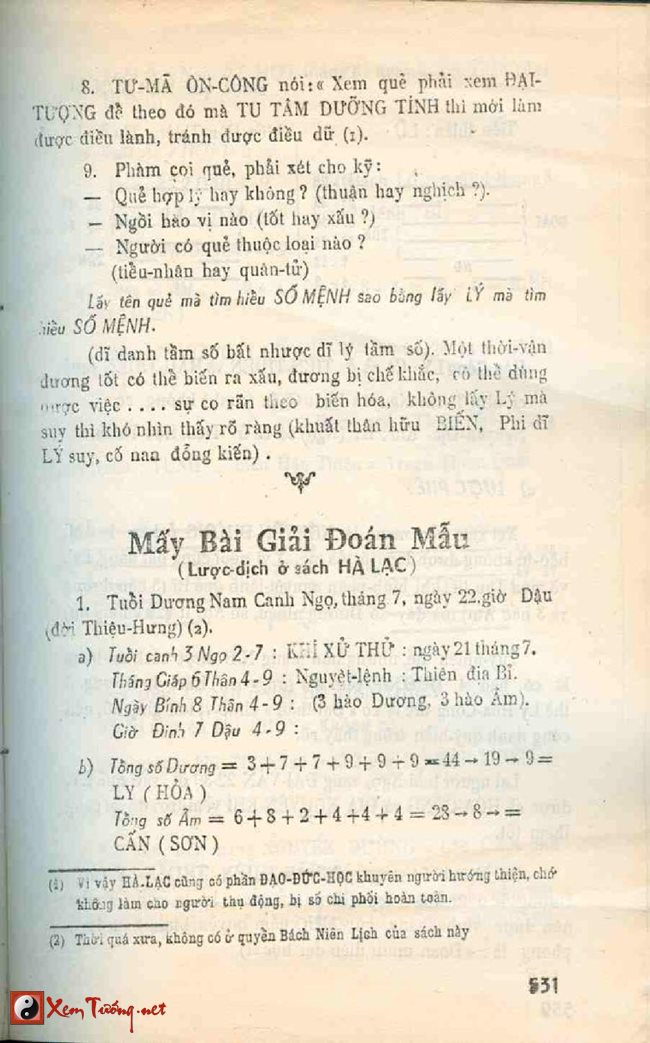 8. TƯ-MÃ ÔN-CÔNG nói: « Xem quẻ phải xem ĐẠI-
TƯỢNG để theo đó mà TU TÂM DƯỠNG TÍNH thì mới làm
được điều lành, tránh được điều dữ (1).
9. Phàm coi quẻ, phải xét cho kỹ:
— Quẻ hợp lý hay không? (thuận hay nghịch ?).
— Ngồi hào vị nào (tốt hay xấu ?)
— Người có quẻ thuộc loại nào ?
(tiểu-nhân hay quân-tử)
Lấy tên quẻ mà tìm hiểu SỐ MỆNH sao bằng lấy LÝ mà tìm
hiểu SỐ MỆNH.
(dĩ danh tầm số bất nhược dĩ lý tầm số). Một thời-vận
đương tốt có thể biến ra xấu, đương bị chế khắc, có thể dùng
được việc .... sự co rãn theo biến hóa, không lấy Lý mà
suy thì khó nhìn thấy rõ ràng (khuất thân hữu BIẾN, Phi dĩ
LÝ suy, cố nan đổng kiến) .
Mấy Bài Giải Đoán Mẫu
(Lược-dịch ở sách HÀ LẠC)
1. Tuổi Dương Nam Canh Ngọ, tháng 7, ngày 22, giờ Dậu
(đời Thiệu-Hưng) (2).
a) Tuổi canh 3 Ngọ 2-7 : KHÍ XỬ THỬ : ngày 21 tháng 7.
Tháng Giáp 6 Thân 4-9 : Nguyệt-lệnh : Thiên địa Bĩ.
Ngày Bính 8 Thân 4-9 : (3 hào Dương, 3 hào Âm).
Giờ Đinh 7 Dậu 4-9 :
b) Tổng số Dương = 3+7+7+9+9+9=44→19→9=
LY (HỎA)
Tổng số Âm = 6+8+2+4+4+4=28→8→=
CẤN (SƠN)
(1) Vì vậy HÀ-LẠC cũng có phần ĐẠO-ĐỨC-HỌC khuyên người hướng thiện, chớ
không làm cho người thụ động, bị số chi phối hoàn toàn.
(2) Thời quá xưa, không có ở quyển Bách Niên Lịch của sách này
531
XemTướng.net